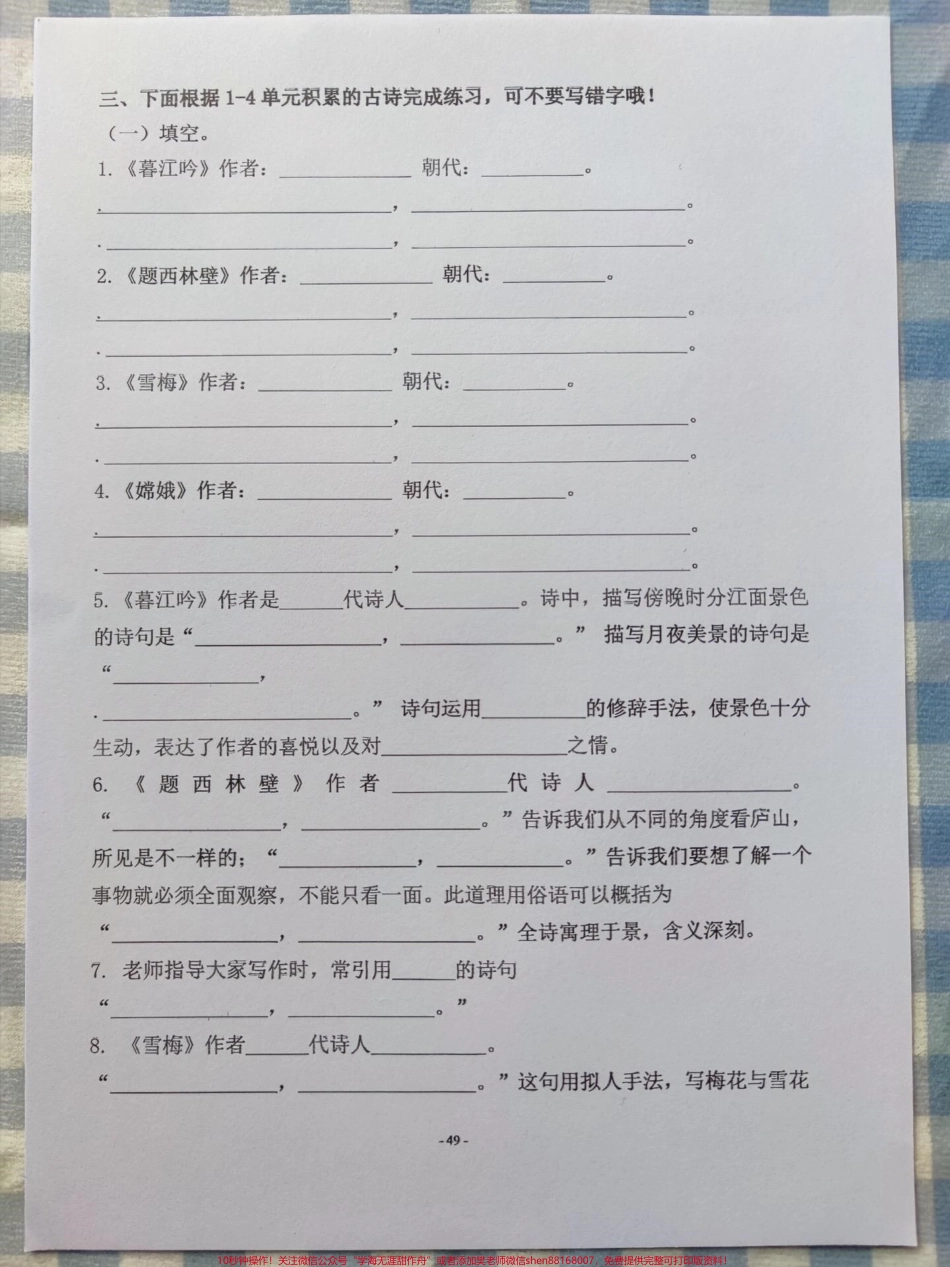 三、下面根据1-4单元积累的古诗完成练习，可不要写错字哦！
（一）填空。
1.《暮江吟》作者：____________ 朝代：__________。
.____________________________，__________________________。
.____________________________，__________________________。
2.《题西林壁》作者：____________ 朝代：__________。
.____________________________，__________________________。
.____________________________，__________________________。
3.《雪梅》作者：____________ 朝代：__________。
.____________________________，__________________________。
.____________________________，__________________________。
4.《嫦娥》作者：____________ 朝代：__________。
.____________________________，__________________________。
.____________________________，__________________________。
5.《暮江吟》作者是______代诗人___________。诗中，描写傍晚时分江面景色
的诗句是“__________________，_______________。” 描写月夜美景的诗句是
“______________，
.________________________。” 诗句运用__________的修辞手法，使景色十分
生动，表达了作者的喜悦以及对__________________之情。
6. 《 题 西 林 壁 》 作 者 ___________代 诗 人 __________________。
“________________，_________________。”告诉我们从不同的角度看庐山，
所见是不一样的；“_____________，____________。”告诉我们要想了解一个
事物就必须全面观察，不能只看一面。此道理用俗语可以概括为
“________________，_________________。”全诗寓理于景，含义深刻。
7. 老师指导大家写作时，常引用______的诗句
“_______________，______________。”
8. 《雪梅》作者______代诗人___________。
“________________，_________________。”这句用拟人手法，写梅花与雪花
-49-
10秒钟操作！关注微信公众号“学海无涯甜作舟”或者添加吴老师微信shen88168007，免费提供完整可打印版资料！